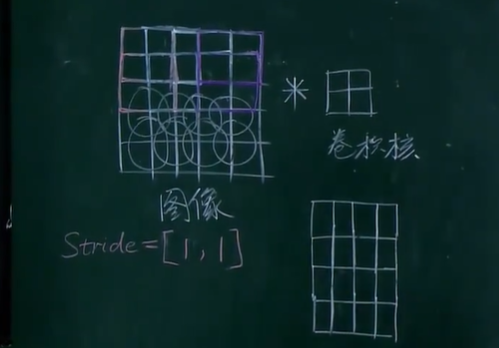 *
卷积核
图像
Stride=[1,1]